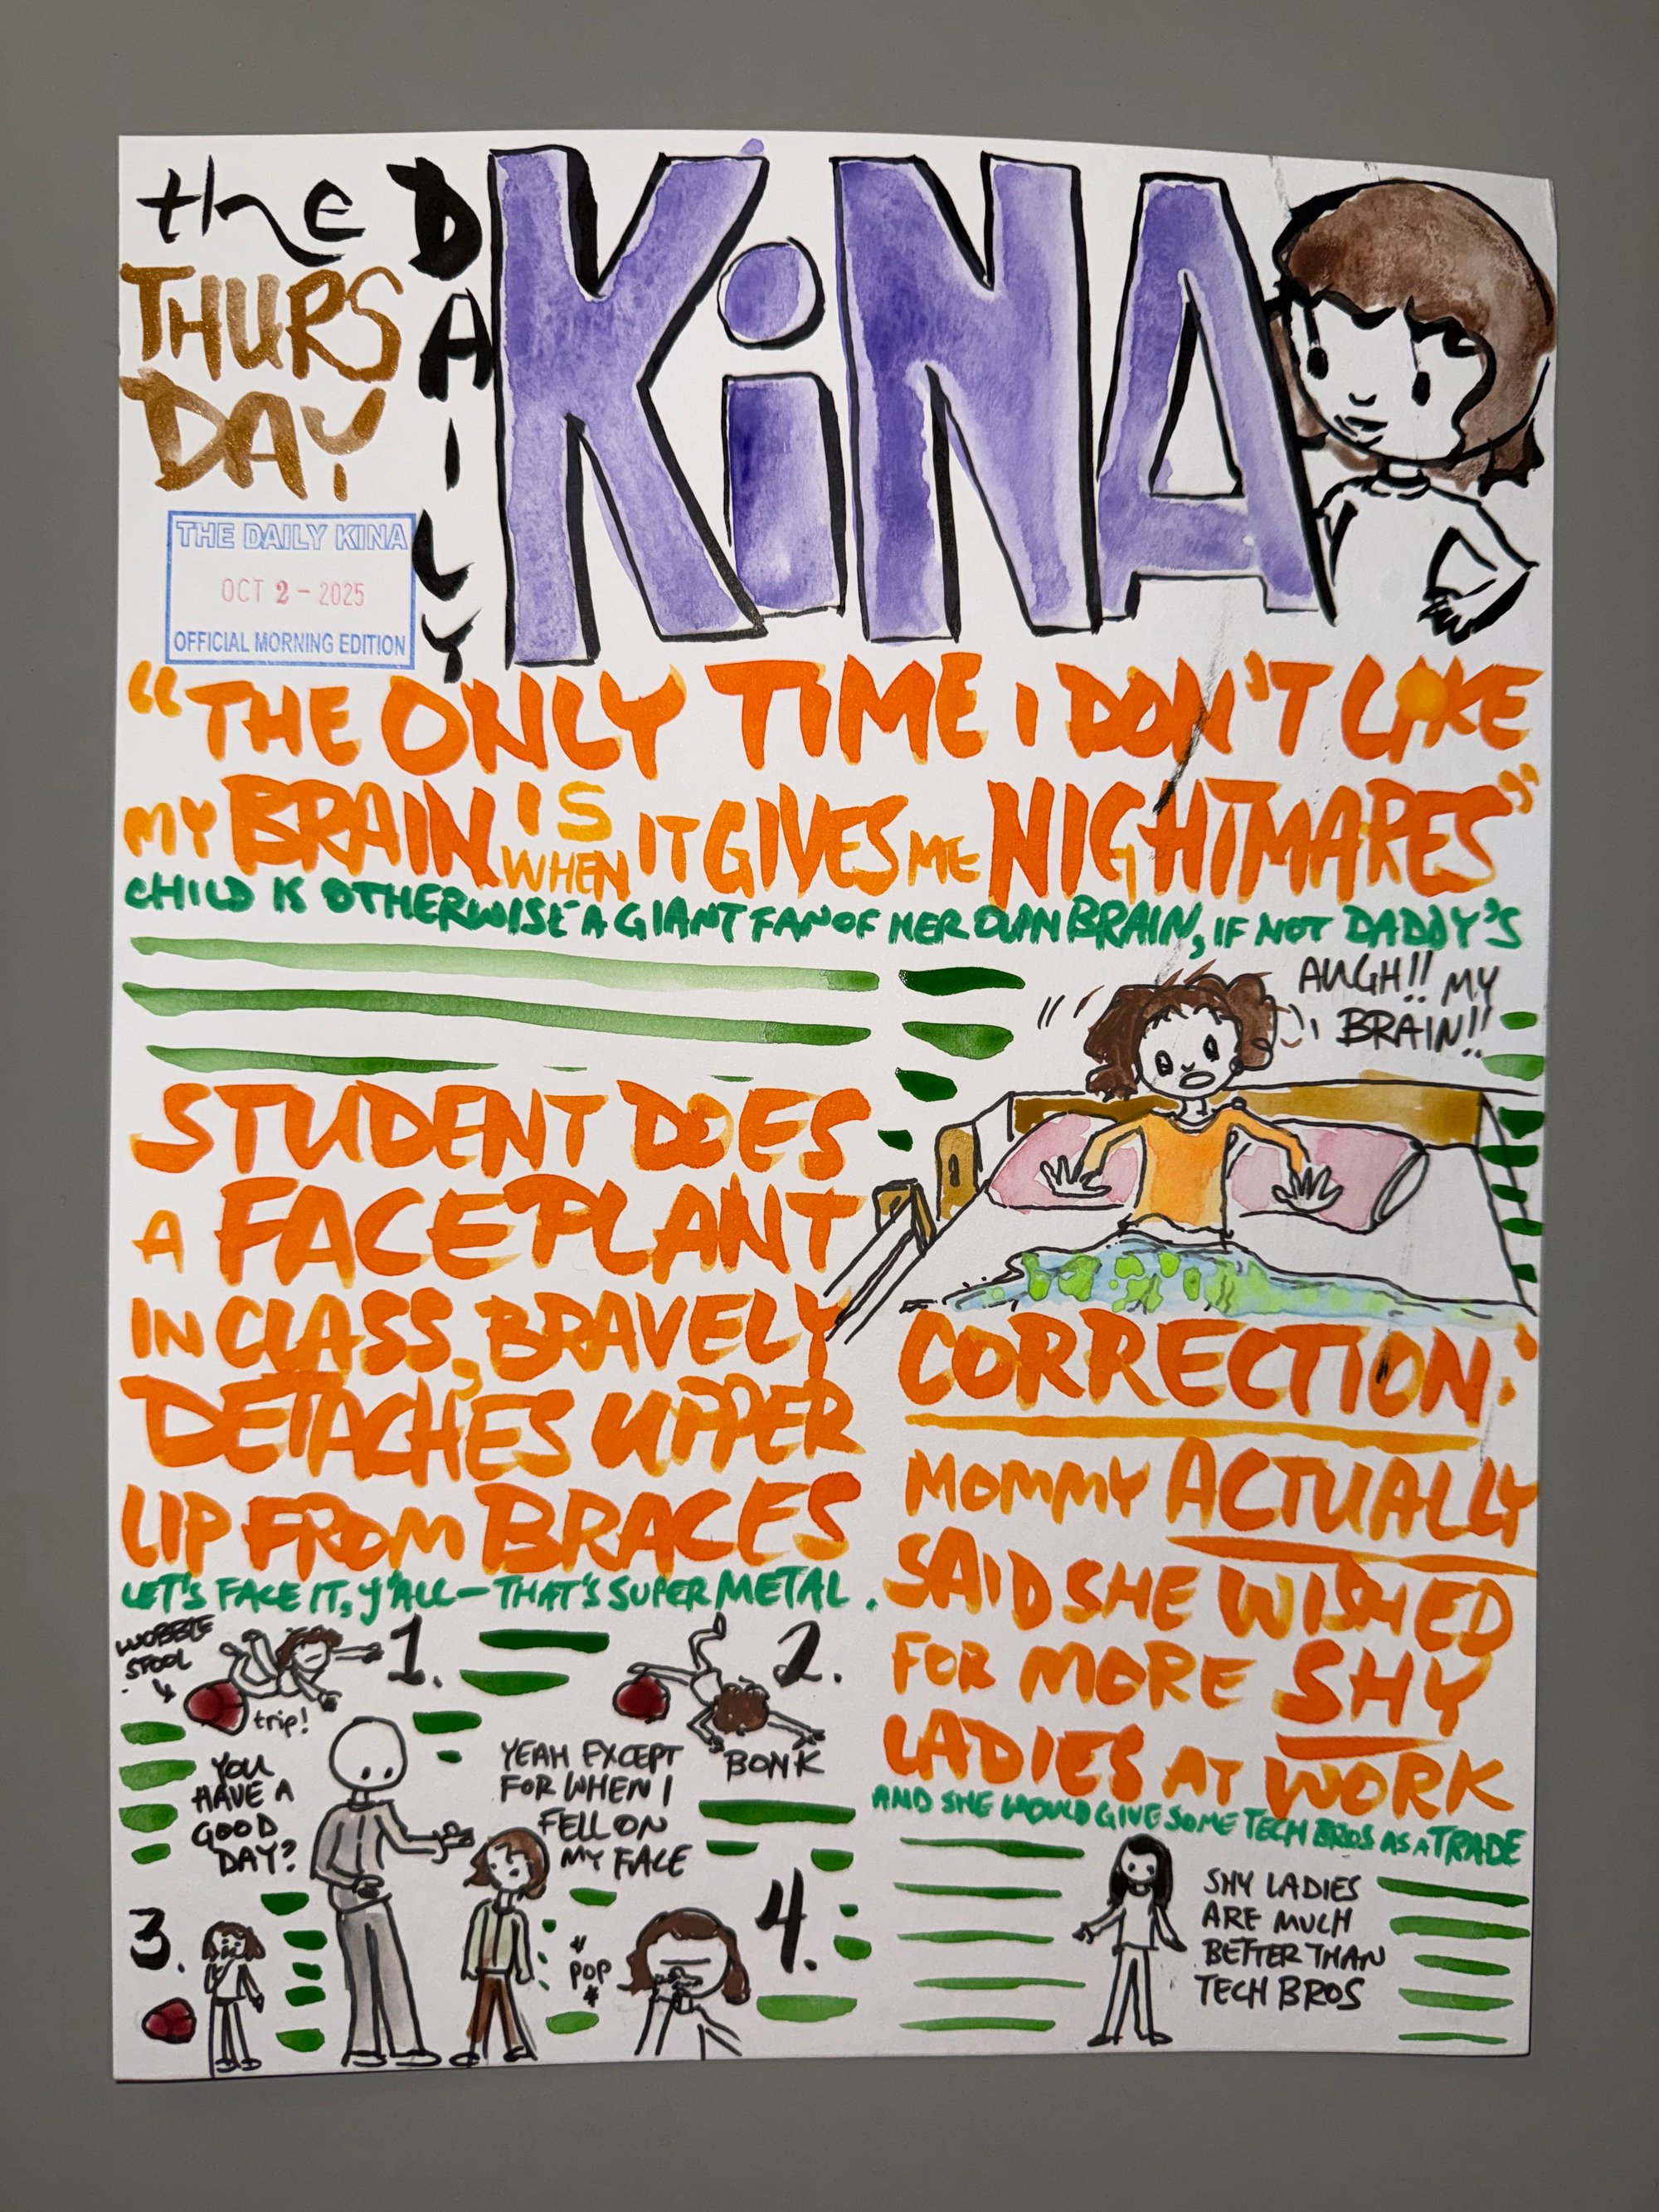 the
DAILY
KiNA
THURS
DAY
THE DAILY KINA
OCT 2 - 2025
OFFICIAL MORNING EDITION
“THE ONLY TIME I DON'T LIKE
MY BRAIN IS WHEN IT GIVES ME NIGHTMARES”
CHILD IS OTHERWISE A GIANT FAN OF HER OWN BRAIN, IF NOT DADDY'S
AUGH!! MY
BRAIN!!
STUDENT DOES
A FACEPLANT
IN CLASS, BRAVELY
DETACHES UPPER
LIP FROM BRACES
LET'S FACE IT, Y'ALL — THAT'S SUPER METAL.
WOBBLE
STOOL
1.
trip!
2.
BONK
YOU
HAVE A
GOOD
DAY?
YEAH EXCEPT
FOR WHEN I
FELL ON
MY FACE
3.
4.
*POP*
CORRECTION:
MOMMY ACTUALLY
SAID SHE WISHED
FOR MORE SHY
LADIES AT WORK
AND SHE WOULD GIVE SOME TECH BROS AS A TRADE
SHY LADIES
ARE MUCH
BETTER THAN
TECH BROS